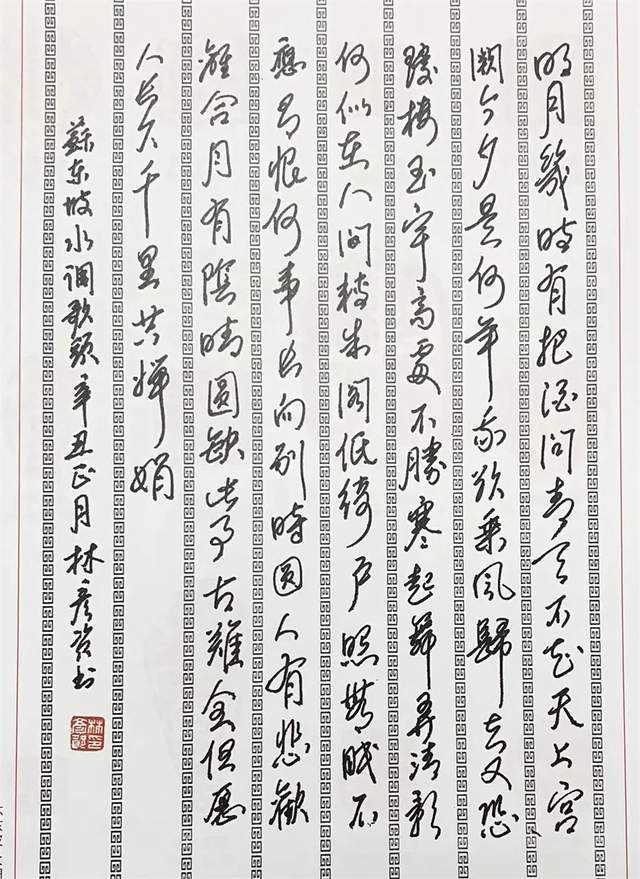 明月幾時有把酒問青天不知天上宮
闕今夕是何年我欲乘風歸去又恐
瓊樓玉宇高處不勝寒起舞弄清影
何似在人間轉朱閣低綺戶照無眠不
應有恨何事長向別時圓人有悲歡
離合月有陰晴圓缺此事古難全但愿
人長久千里共嬋娟
蘇東坡水调歌頭辛丑正月林彥书